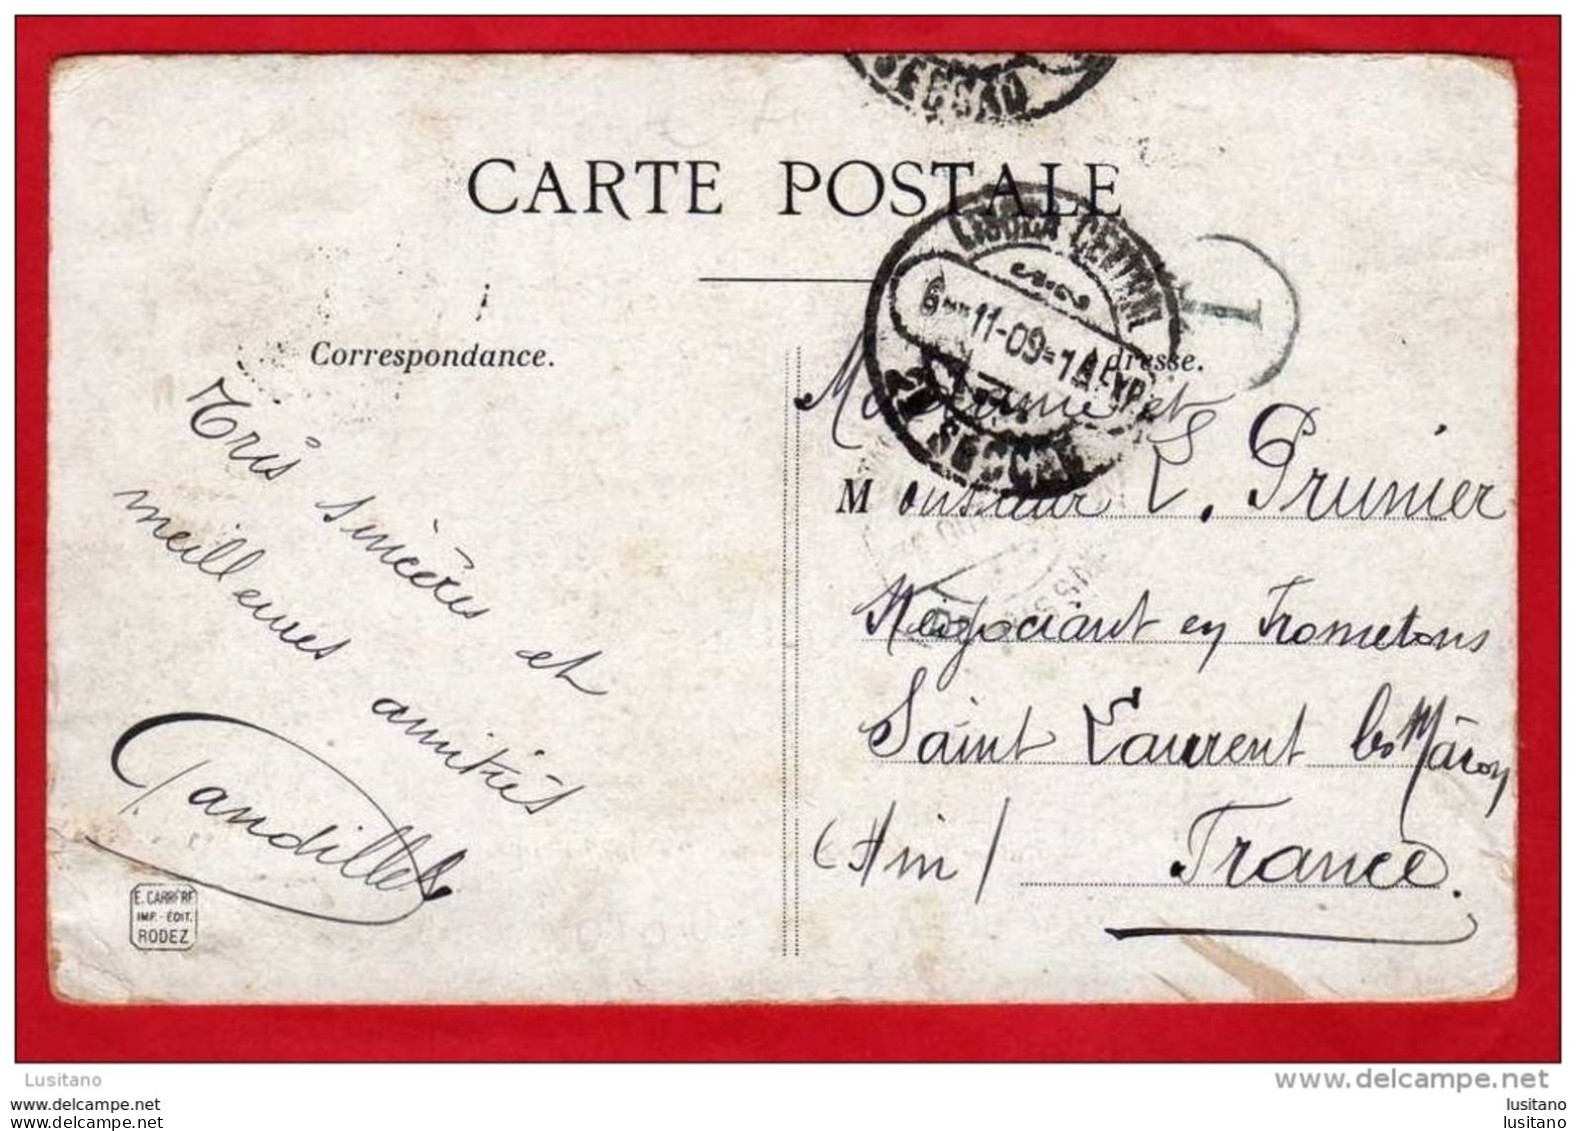 SECÇÃO
CARTE POSTALE
LISBOA CENTRAL
6-11-09=1
SECÇÃO
T
Correspondance.
Adresse.
Très sincères et
meilleures amitiés
Madame et
Monsieur L. Prunier
Négociant en
Saint Laurent les Mâcon
(Ain)
France.
E. CARRÈRE
IMP.-ÉDIT.
RODEZ
Lusitano
www.delcampe.net
lusitano
lusitano
lusitano
lusitano